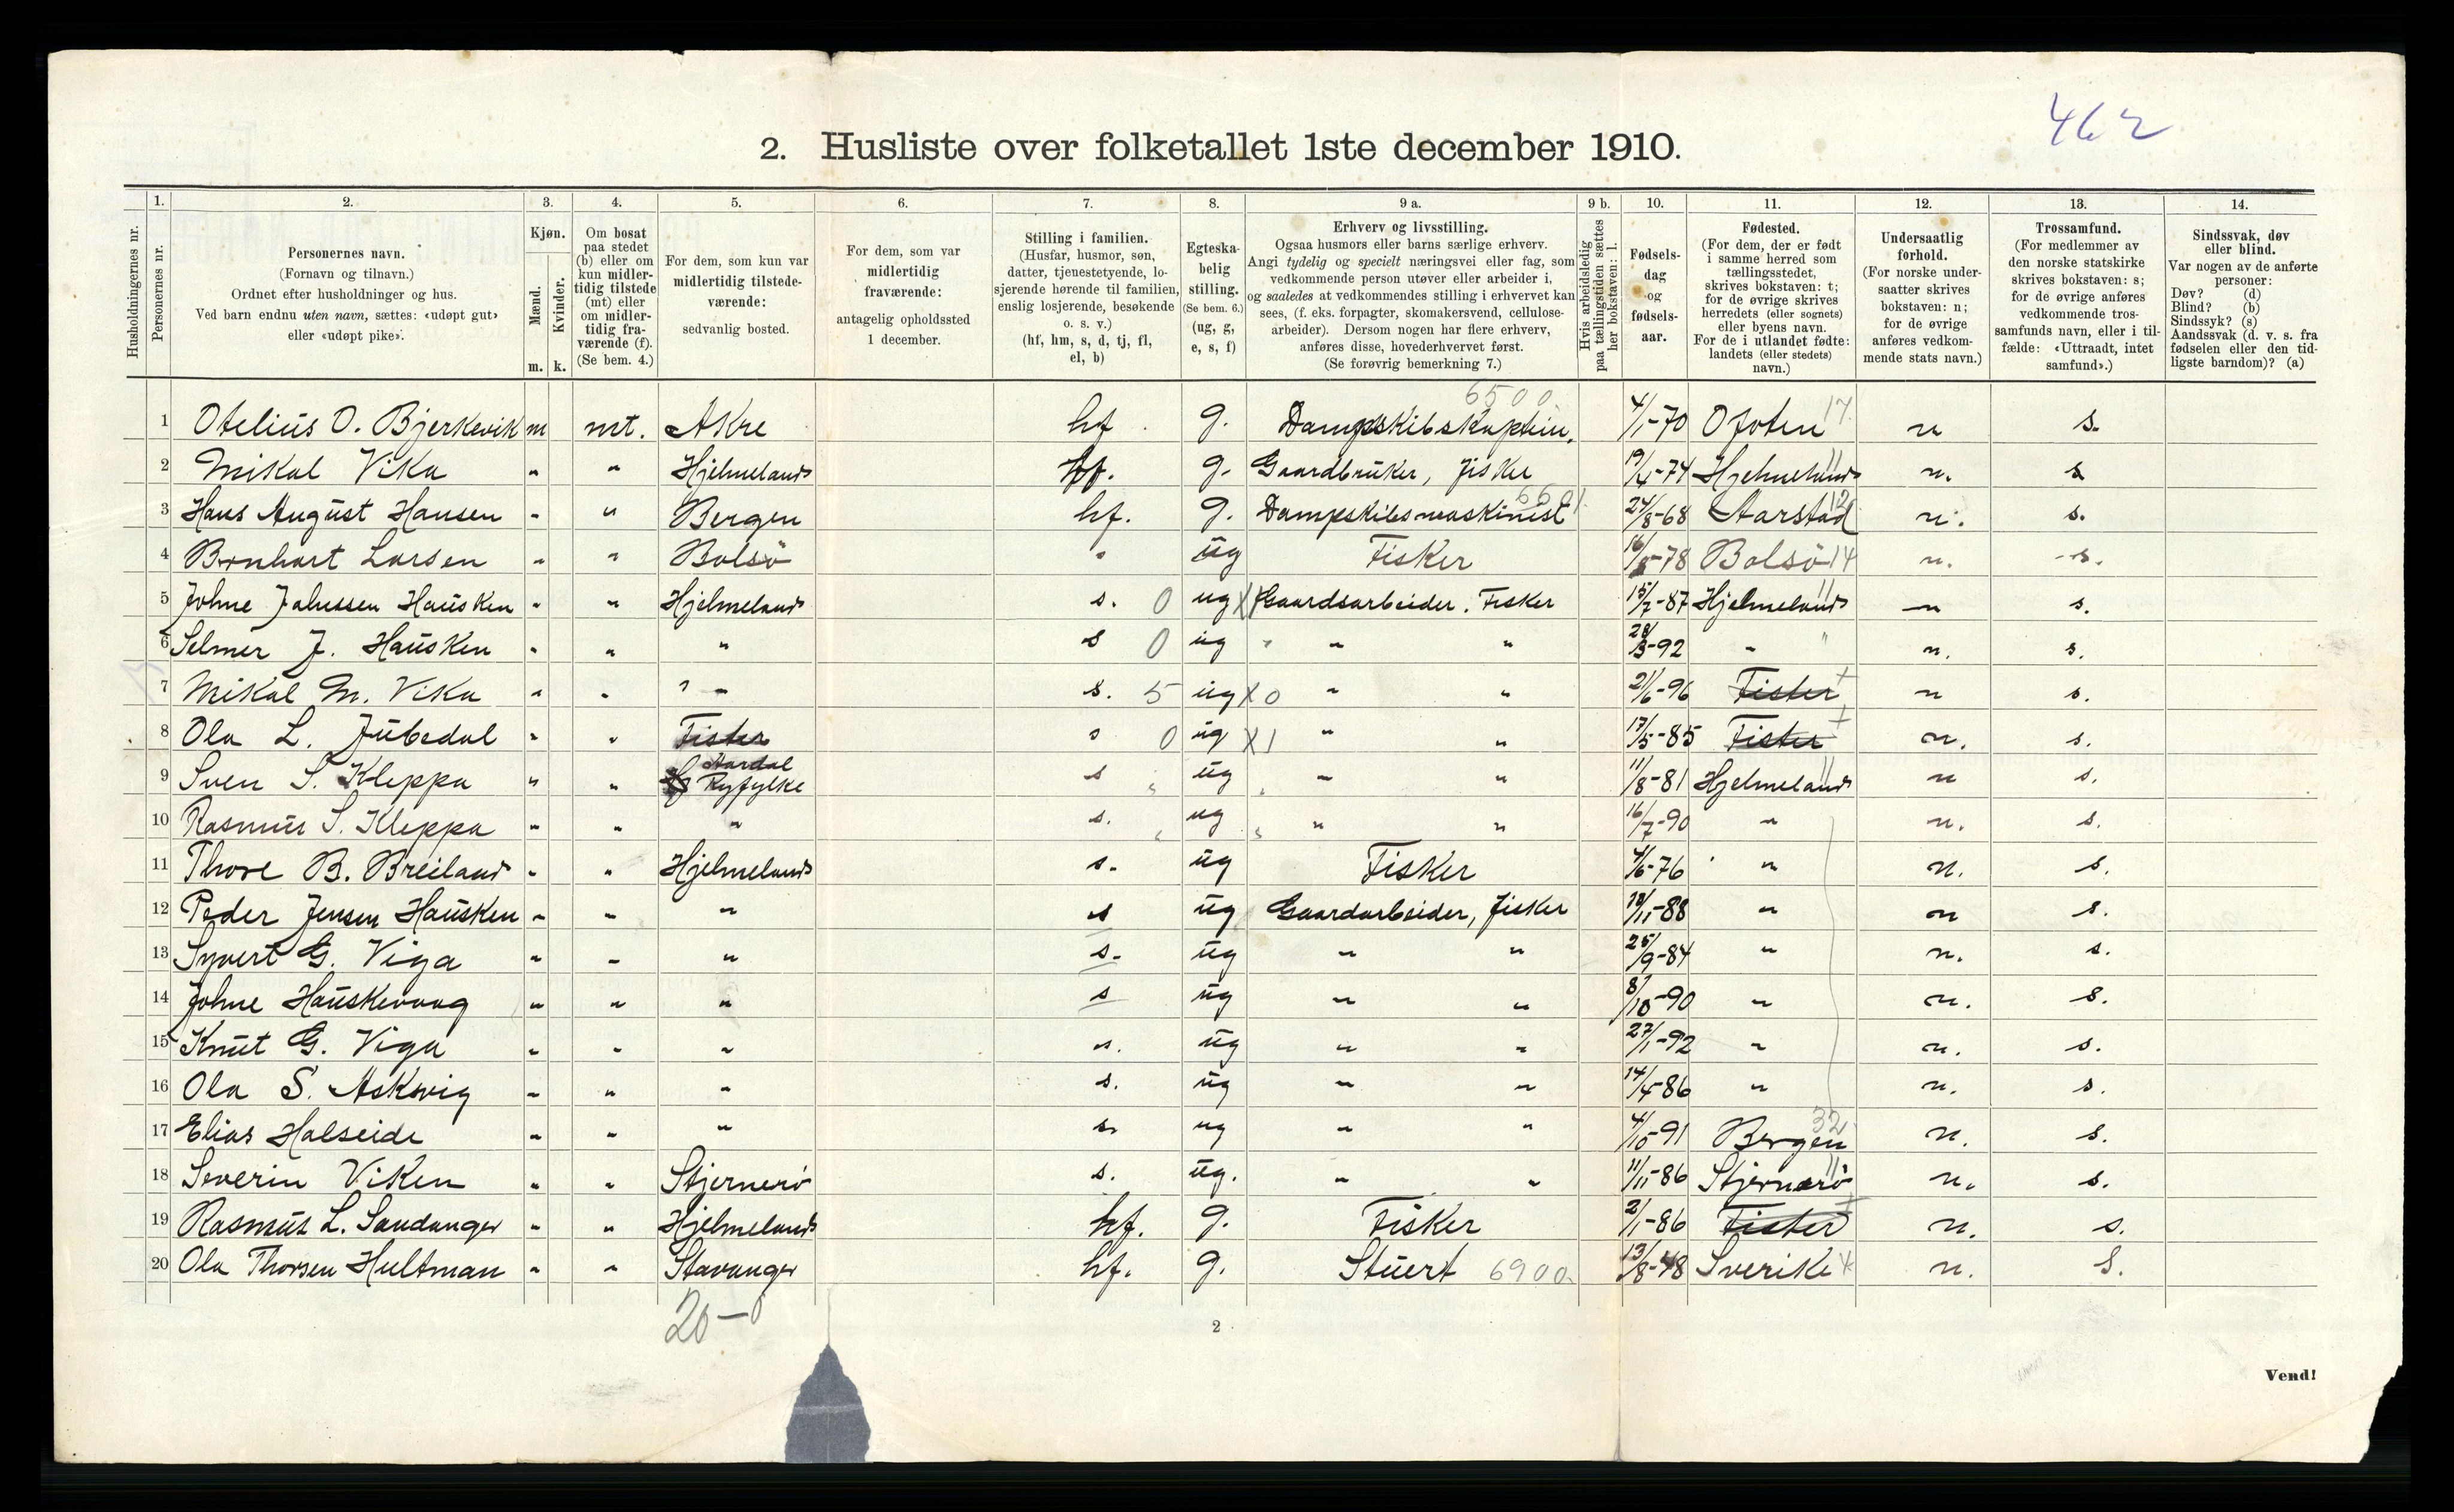 462
2. Husliste over folketallet 1ste december 1910.
1. 2. 3. 4. 5. 6. 7. 8. 9 a. 9 b. 10. 11. 12. 13. 14.
Husholdningernes nr.
Personernes nr.
Personernes navn.
(Fornavn og tilnavn.)
Ordnet efter husholdninger og hus.
Ved barn endnu uten navn, sættes: «udøpt gut»
eller «udøpt pike».
Kjøn.
Mænd.
Kvinder.
m. k.
Om bosat
paa stedet
(b) eller om
kun midler-
tidig tilstede
(mt) eller
om midler-
tidig fra-
værende (f).
(Se bem. 4.)
For dem, som kun var
midlertidig tilstede-
værende:
sedvanlig bosted.
For dem, som var
midlertidig
fraværende:
antagelig opholdssted
1 december.
Stilling i familien.
(Husfar, husmor, søn,
datter, tjenestetyende, lo-
sjerende hørende til familien,
enslig losjerende, besøkende
o. s. v.)
(hf, hm, s, d, tj, fl,
el, b)
Egteska-
belig
stilling.
(Se bem. 6.)
(ug, g,
e, s, f)
Erhverv og livsstilling.
Ogsaa husmors eller barns særlige erhverv.
Angi tydelig og specielt næringsvei eller fag, som
vedkommende person utøver eller arbeider i,
og saaledes at vedkommendes stilling i erhvervet kan
sees, (f. eks. forpagter, skomakersvend, cellulose-
arbeider). Dersom nogen har flere erhverv,
anføres disse, hovederhvervet først.
(Se forøvrig bemerkning 7.)
Hvis arbeidsledig
paa tællingstiden sættes
her bokstaven: l.
Fødsels-
dag
og
fødsels-
aar.
Fødested.
(For dem, der er født
i samme herred som
tællingsstedet,
skrives bokstaven: t;
for de øvrige skrives
herredets (eller sognets)
eller byens navn.
For de i utlandet fødte:
landets (eller stedets)
navn.)
Undersaatlig
forhold.
(For norske under-
saatter skrives
bokstaven: n;
for de øvrige
anføres vedkom-
mende stats navn.)
Trossamfund.
(For medlemmer av
den norske statskirke
skrives bokstaven: s;
for de øvrige anføres
vedkommende tros-
samfunds navn, eller i til-
fælde: «Uttraadt, intet
samfund».)
Sindssvak, døv
eller blind.
Var nogen av de anførte
personer:
Døv? (d)
Blind? (b)
Sindssyk? (s)
Aandssvak (d. v. s. fra
fødselen eller den tid-
ligste barndom)? (a)
6500
1 Otelius O. Bjerkevik m mt. Akre hf. g. Dampskibskaptein. 4/1-70 Ofoten 17 n s.
2 Mikal Vika " " Hjelmeland hf. g. Gaardbruker, fisker 19/4-74 Hjelmeland 11 n. s
3 Hans August Hansen " " Bergen hf. g. Dampskibsmaskinist 6601 24/8-68 Aarstad 12 n. s.
4 Bernhart Larsen " " Bolsö " ug Fisker 16/-78 Bolsö 14 n. s.
5 Johne Johnssen Hausken " " Hjelmeland s. 0 ug X Gaardsarbeider. Fisker 15/7-87 Hjelmeland 11 n s.
6 Selmer J. Hausken " " " s 0 ug " " 28/3-92 " " n. s.
7 Mikal M. Vika " " " s. 5 ug X0 " " 21/6-96 Fister t n s.
8 Ola L. Jubedal " " Fister s 0 ug X1 " " 17/5-85 Fister t n. s.
9 Sven S. Kleppa " " Aardal Ryfylke s " ug " " 11/8-81 Hjelmeland 11 n s.
10 Rasmus S. Kleppa " " " s. " ug " " 16/7-90 " n. s.
11 Thore B. Breiland " " Hjelmeland s. ug Fisker 4/6-76 " n. s.
12 Peder Jensen Hausken " " " s ug Gaardarbeider, fisker 18/11-88 " n s.
13 Syvert G. Viga " " " s. ug " " 25/9-84 " n. s.
14 Johne Hauskevaag " " " s ug " " 8/10-90 " n. s.
15 Knut G. Viga " " " s. ug " " 27/1-92 " n. s.
16 Ola S. Askvig " " " s. ug " " 14/4-86 " n. s.
17 Elias Halseide " " " s. ug " " 4/10-91 Bergen 32 n. s.
18 Severin Viken " " Stjernerö s. ug. " " 11/11-86 Stjernerö 11 n. s.
19 Rasmus L. Sandanger " " Hjelmeland hf. g. Fisker 2/1-86 Fister t n. s.
20 Ola Thorsen Hultman " " Stavanger hf. g. Stuert 6900 13/8-48 Sverike n. s.
20-0
2
Vend!